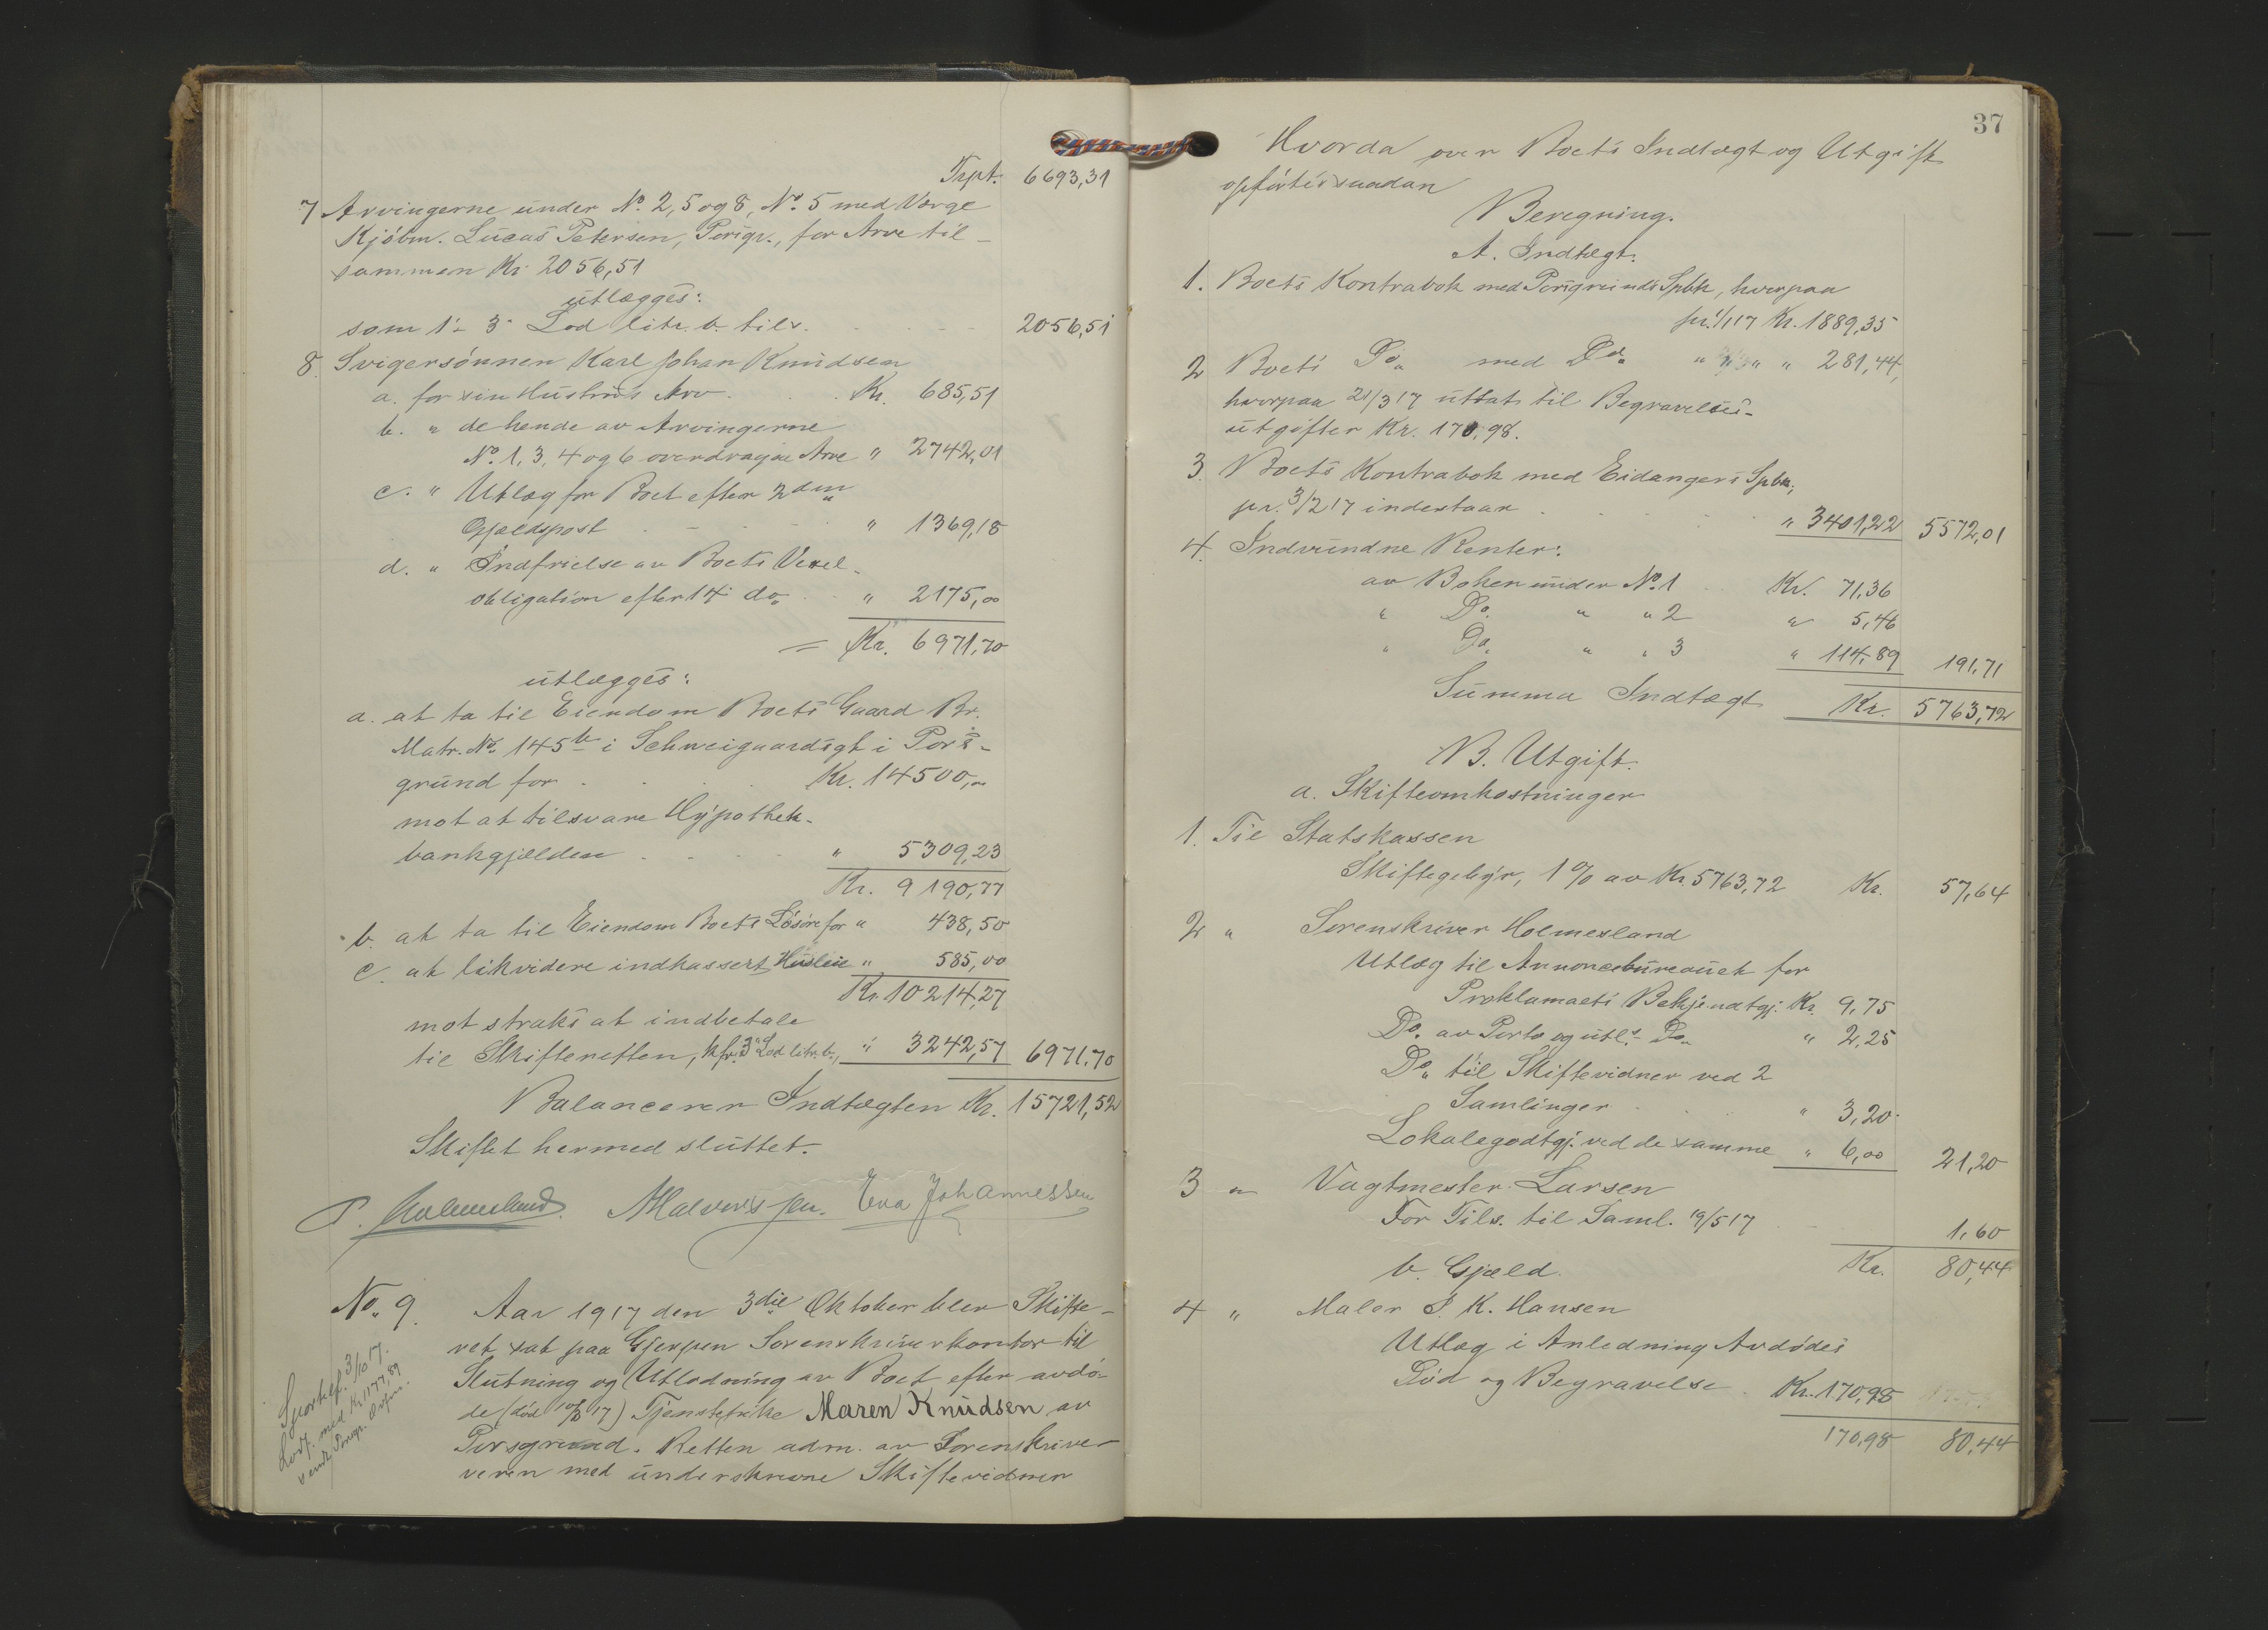 Trpt. 6693,31
7 Arvingerne under No. 2, 5 og 8, No. 5 med Værge
Kjöbm. Lucas Petersen, Porsgr., for Arve til-
sammen Kr 2056,51
utlægges:
som 1ste 3" Lod litr. b. tilv. 2056,51
8. Svigersönnen Karl Johan Knudsen
a. for sin Hustrus Arv. Kr. 685,51
b. " de hende av Arvingerne
No. 1, 3, 4 og 6 overdragne Arve " 2742,01
c. " Utlæg for Boet efter 2den
Gjældspost " 1369,18
d. " Indfrielse av Boets Vexel-
obligation efter 14 do. " 2175,00
= Kr. 6971,70
utlægges:
a. at ta til Eiendom Boets Gaard Br.
Matr. No. 145b i Schweigaardsgt i Pors-
grund for Kr. 14500,00
mot at tilsvare Hypothek-
bankgjælden " 5309,23
Kr. 9190,77
b. at ta til Eiendom Boets Lösöre for " 438,50
c. at likvidere indkassert Husleie " 585,00
Kr. 10214,27
mot straks at indbetale
til Skifteretten, kfr. 3" Lod litr. b., " 3242,57 6971,70
Balancerer Indtægten Kr. 15721,52
Skiftet hermed sluttet.
P. Holmesland. Eva Johannessen
No. 9. Aar 1917 den 3die Oktober blev Skifte-
ret sat paa Gjerpen Sorenskriverkontor til
Slutning og Utlodning av Boet efter avdö-
de (död 17) Tjenestepike Maren Knudsen av
Porsgrund. Retten adm. av Sorenskrive-
veren med underskrevne Skiftevidner
3/10 17.
med Kr. 1177,89
37
Hvorda over Boets Indtægt og Utgift
opförtes saadan
Beregning.
A. Indtægt.
1. Boets Kontrabok med Porsgrunds Spbk, hvorpaa
pr. 1/1 17 Kr. 1889,35
2 Boets Do. med Do. " " " 281,44,
hvorpaa 21/3 17 uttat til Begravelses-
utgifter Kr. 170,98.
3. Boets Kontrabok med Eidangers Spbk.,
pr. 3/2 17 indestaar " 3401,22 5572,01
4. Indvundne Renter:
av Boken under No. 1 Kr. 71,36
" Do. " " 2 " 5,46
" Do. " " 3 " 114,89 191,71
Summa Indtægt Kr. 5763,72
B. Utgift.
a. Skifteomkostninger
1. Til Statskassen
Skiftegebyr, 1 % av Kr. 5763,72 Kr. 57,64
2 " Sorenskriver Holmesland
Utlæg til Annoncebureauet for
Proklamaets Bekjendtgj. Kr. 9,75
Do. av Porto og utl. Do. " 2,25
Do. til Skiftevidner ved 2
Samlinger " 3,20
Lokalegodtgj. ved de samme " 6,00 21,20
3 " Vagtmester Larsen
For Tils. til Saml. 19/5 17 1,60
b. Gjæld. Kr. 80,44
4 " Maler J. K. Hansen
Utlæg i Anledning Avdödes
Död og Begravelse Kr. 170,98
170,98 80,44